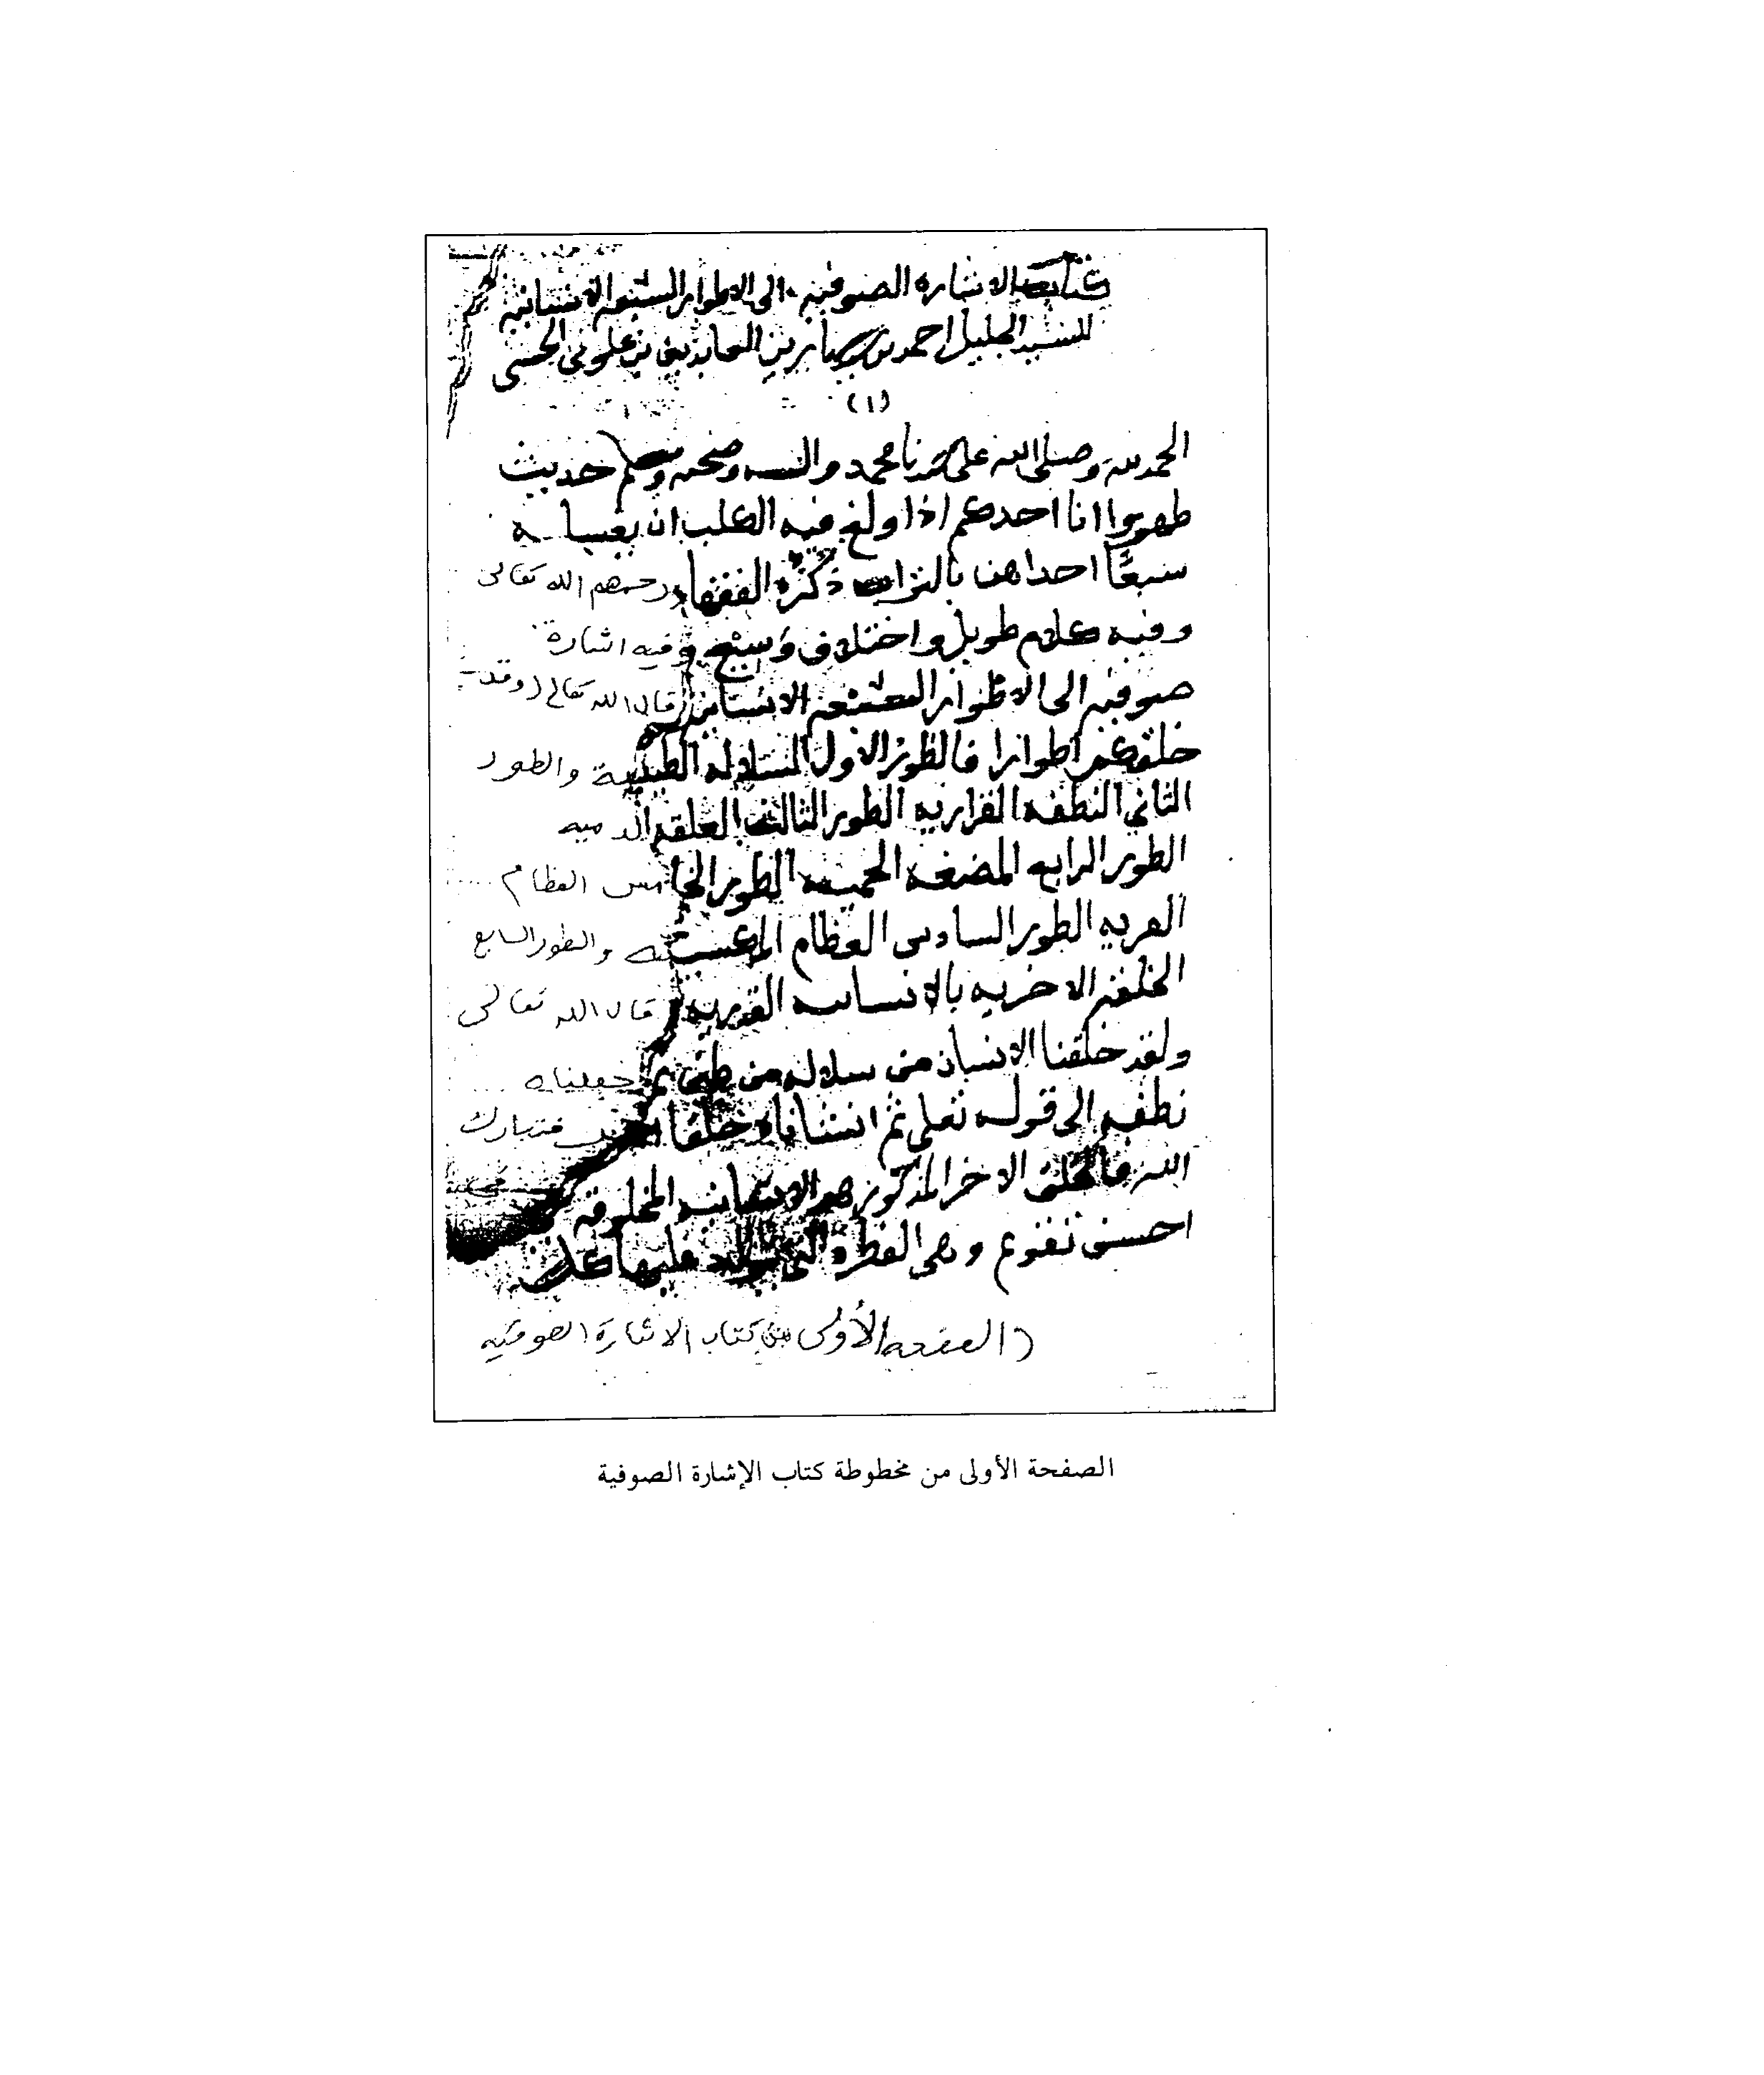 كتاب الاشاره الصوفيه الى الاطوار السبعه الانسانيه
للسيد الجليل احمد بن زين العابدين بن علوي الحسى
(١)
الحمد لله وصلى الله على سيدنا محمد واله وصحبه وسلم حديث
طهروا انا احدكم اذا ولغ فيه الكلب ان يغسله
سبعًا احداهن بالتراب ذكره الفقهاء رحمهم الله تعالى
وفيه كلام طويل واختلاف وسيع وفيه اشارة
صوفيه الى الاطوار السبعه الانسانيه قال الله تعالى (وقد
خلقكم اطوارا فالطور الاول السلاله الطينية والطور
الثاني النطفه القراريه الطور الثالث العلقه الدميه
الطور الرابع المضغه الحميه الطور الخامس العظام
العريه الطور السادس العظام المكسيه والطور السابع
الخلقه الاخريه بالانسانيه القويه قال الله تعالى
ولقد خلقنا الانسان من سلاله من طين ثم جعلناه
نطفه الى قوله تعلى ثم انشاناه خلقا اخر فتبارك
الله فالخلق الاخر المذكور هو الانسانيه المخلوقه في
احسن تقويم وهي الفطره التي يولد عليها كل
(الصفحه الأولى من كتاب الاشارة الصوفيه
الصفحة الأولى من مخطوطة كتاب الإشارة الصوفية